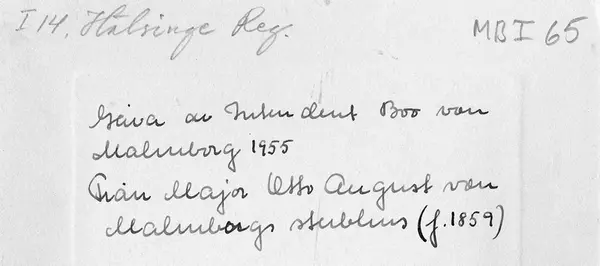 I 14, Hälsinge Reg.
MB I 65
Gåva av Intendent Boo von
Malmborg 1955
Från Major Otto August von
Malmborgs sterbhus (f. 1859)